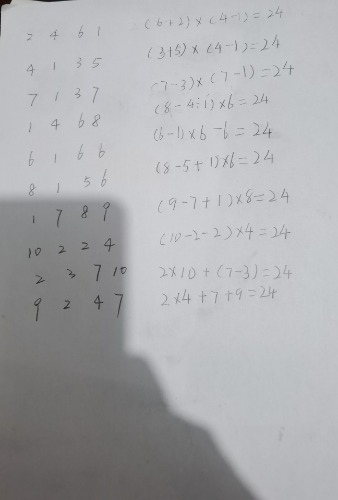 2 4 6 1 (6+2)×(4-1)=24
4 1 3 5 (3+5)×(4-1)=24
7 1 3 7 (7-3)×(7-1)=24
1 4 6 8 (8-4÷1)×6=24
6 1 6 6 (6-1)×6-6=24
8 1 5 6 (8-5+1)×6=24
1 7 8 9 (9-7+1)×8=24
10 2 2 4 (10-2-2)×4=24
2 3 7 10 2×10+(7-3)=24
9 2 4 7 2×4+7+9=24